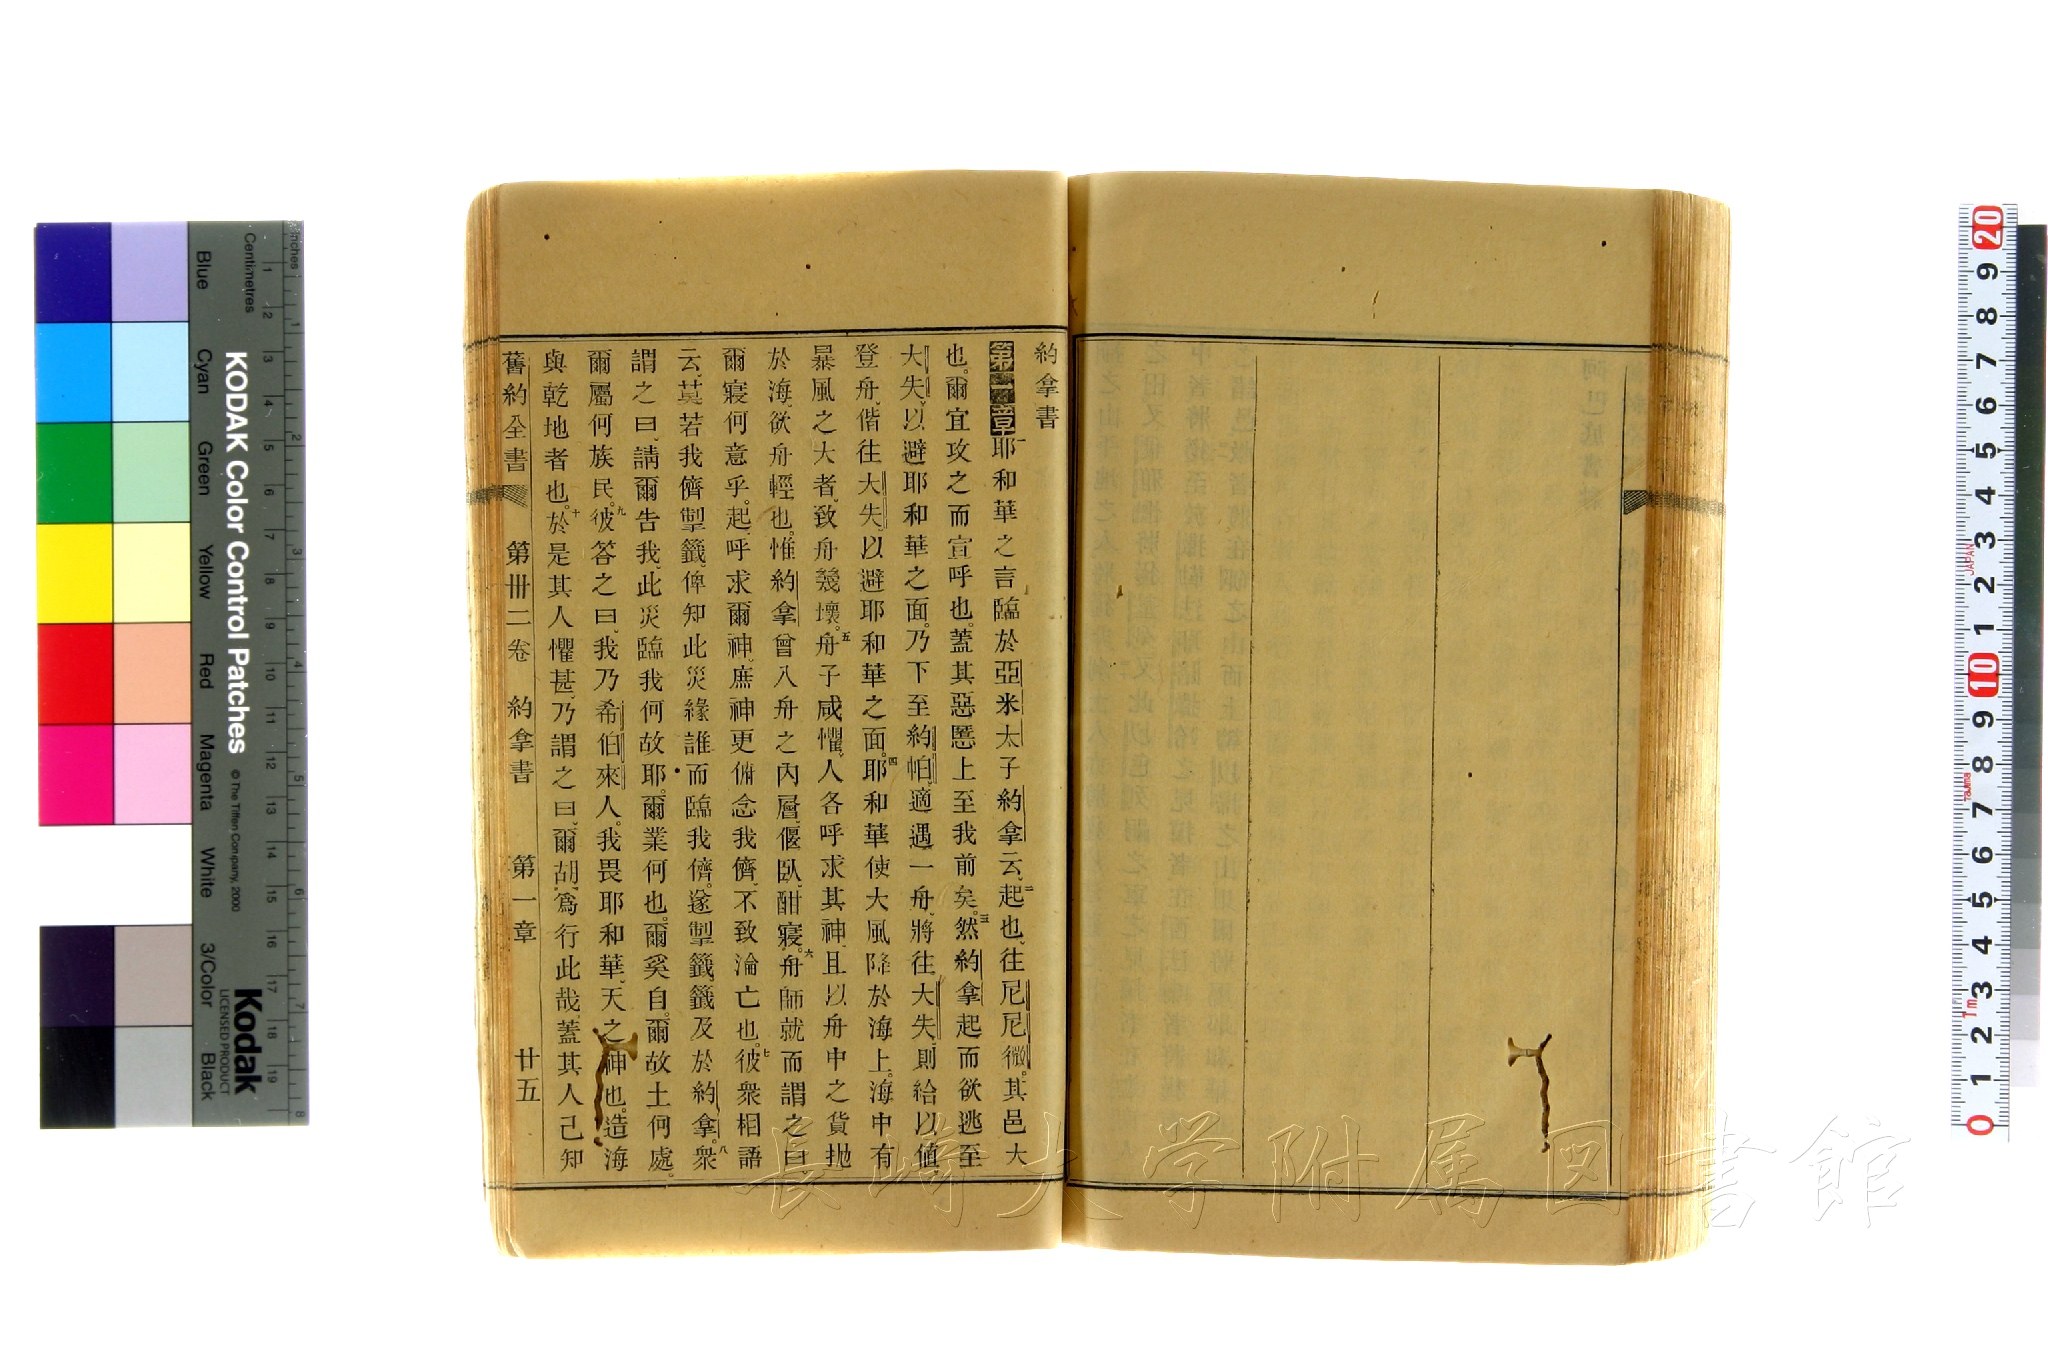 約拿書
第一章一耶和華之言臨於亞米太子約拿云、二起也、往尼尼微。其邑大
也。爾宜攻之而宣呼也。蓋其惡慝上至我前矣。三然約拿起而欲逃至
大失、以避耶和華之面。乃下至約帕、適遇一舟、將往大失、則給以値
登舟、偕往大失、以避耶和華之面。四耶和華使大風降於海上。海中有
暴風之大者、致舟幾壞。五舟子咸懼、人各呼求其神、且以舟中之貨拋
於海、欲舟輕也。惟約拿曾入舟之內層、偃臥、酣寢。六舟師就而謂之曰、
爾寢何意乎。起、呼求爾神、庶神更俯念我儕、不致淪亡也。七彼衆相語
云、莫若我儕掣籤、俾知此災緣誰而臨我儕。遂掣籤、籤及於約拿。八衆
謂之曰、請爾告我、此災臨我何故耶。爾業何也。爾奚自。爾故土何處。
爾屬何族民。九彼答之曰、我乃希伯來人。我畏耶和華、天之神也。造海
與乾地者也。十於是其人懼甚、乃謂之曰、爾胡爲行此哉。蓋其人已知
舊約全書 第卅二卷 約拿書 第一章 廿五
KODAK Color Control Patches
© The Tiffen Company, 2000
Kodak
LICENSED PRODUCT
Inches
Centimetres
Blue
Cyan
Green
Yellow
Red
Magenta
White
3/Color
Black
1 2 3 4 5 6 7 8 9 10 11 12 13 14 15 16 17 18 19
1 2 3 4 5 6 7 8
20 9 8 7 6 5 4 3 2 1 10 9 8 7 6 5 4 3 2 1 0
JAPAN
長崎大学附属図書館